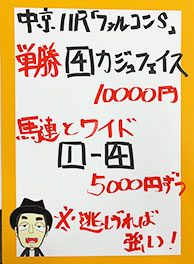 中京11R「ファルコンS」
単勝 4 カジュフェイス
10000円
馬連とワイド
1-4
5000円ずつ
※逃げれば
強い!